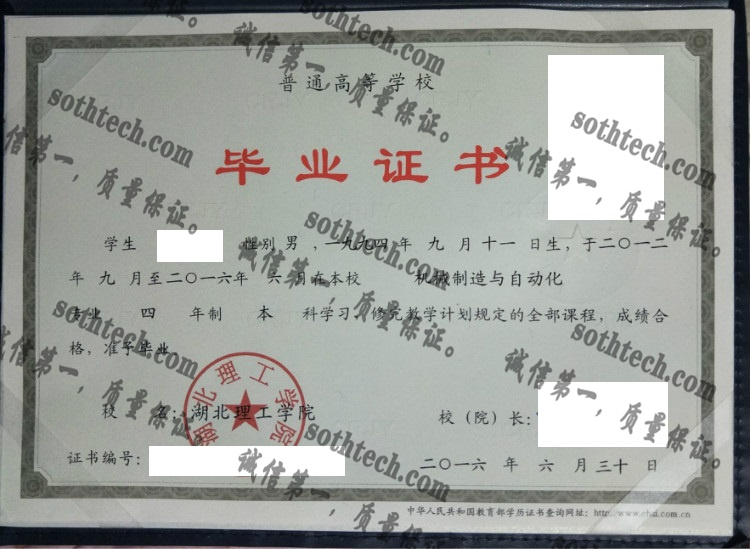 普通高等学校
毕业证书
学生 性别 男 ，一九九四 年 九 月 十一 日生，于二〇一二
年 九 月至二〇一六年 六 月在本校 机械制造与自动化
专业 四 年制 本 科学习，修完教学计划规定的全部课程，成绩合
格，准予毕业。
湖北理工学院
校 名：湖北理工学院 校（院）长：
证书编号： 二〇一六 年 六 月 三十 日
中华人民共和国教育部学历证书查询网址：http://www.chsi.com.cn
sothtech.com
诚信第一，质量保证。
sothtech.com
诚信第一，质量保证。
sothtech.com
诚信第一，质量保证。
sothtech.com
诚信第一，质量保证。
sothtech.com
诚信第一，质量保证。
sothtech.com
诚信第一，质量保证。
sothtech.com
诚信第一，质量保证。